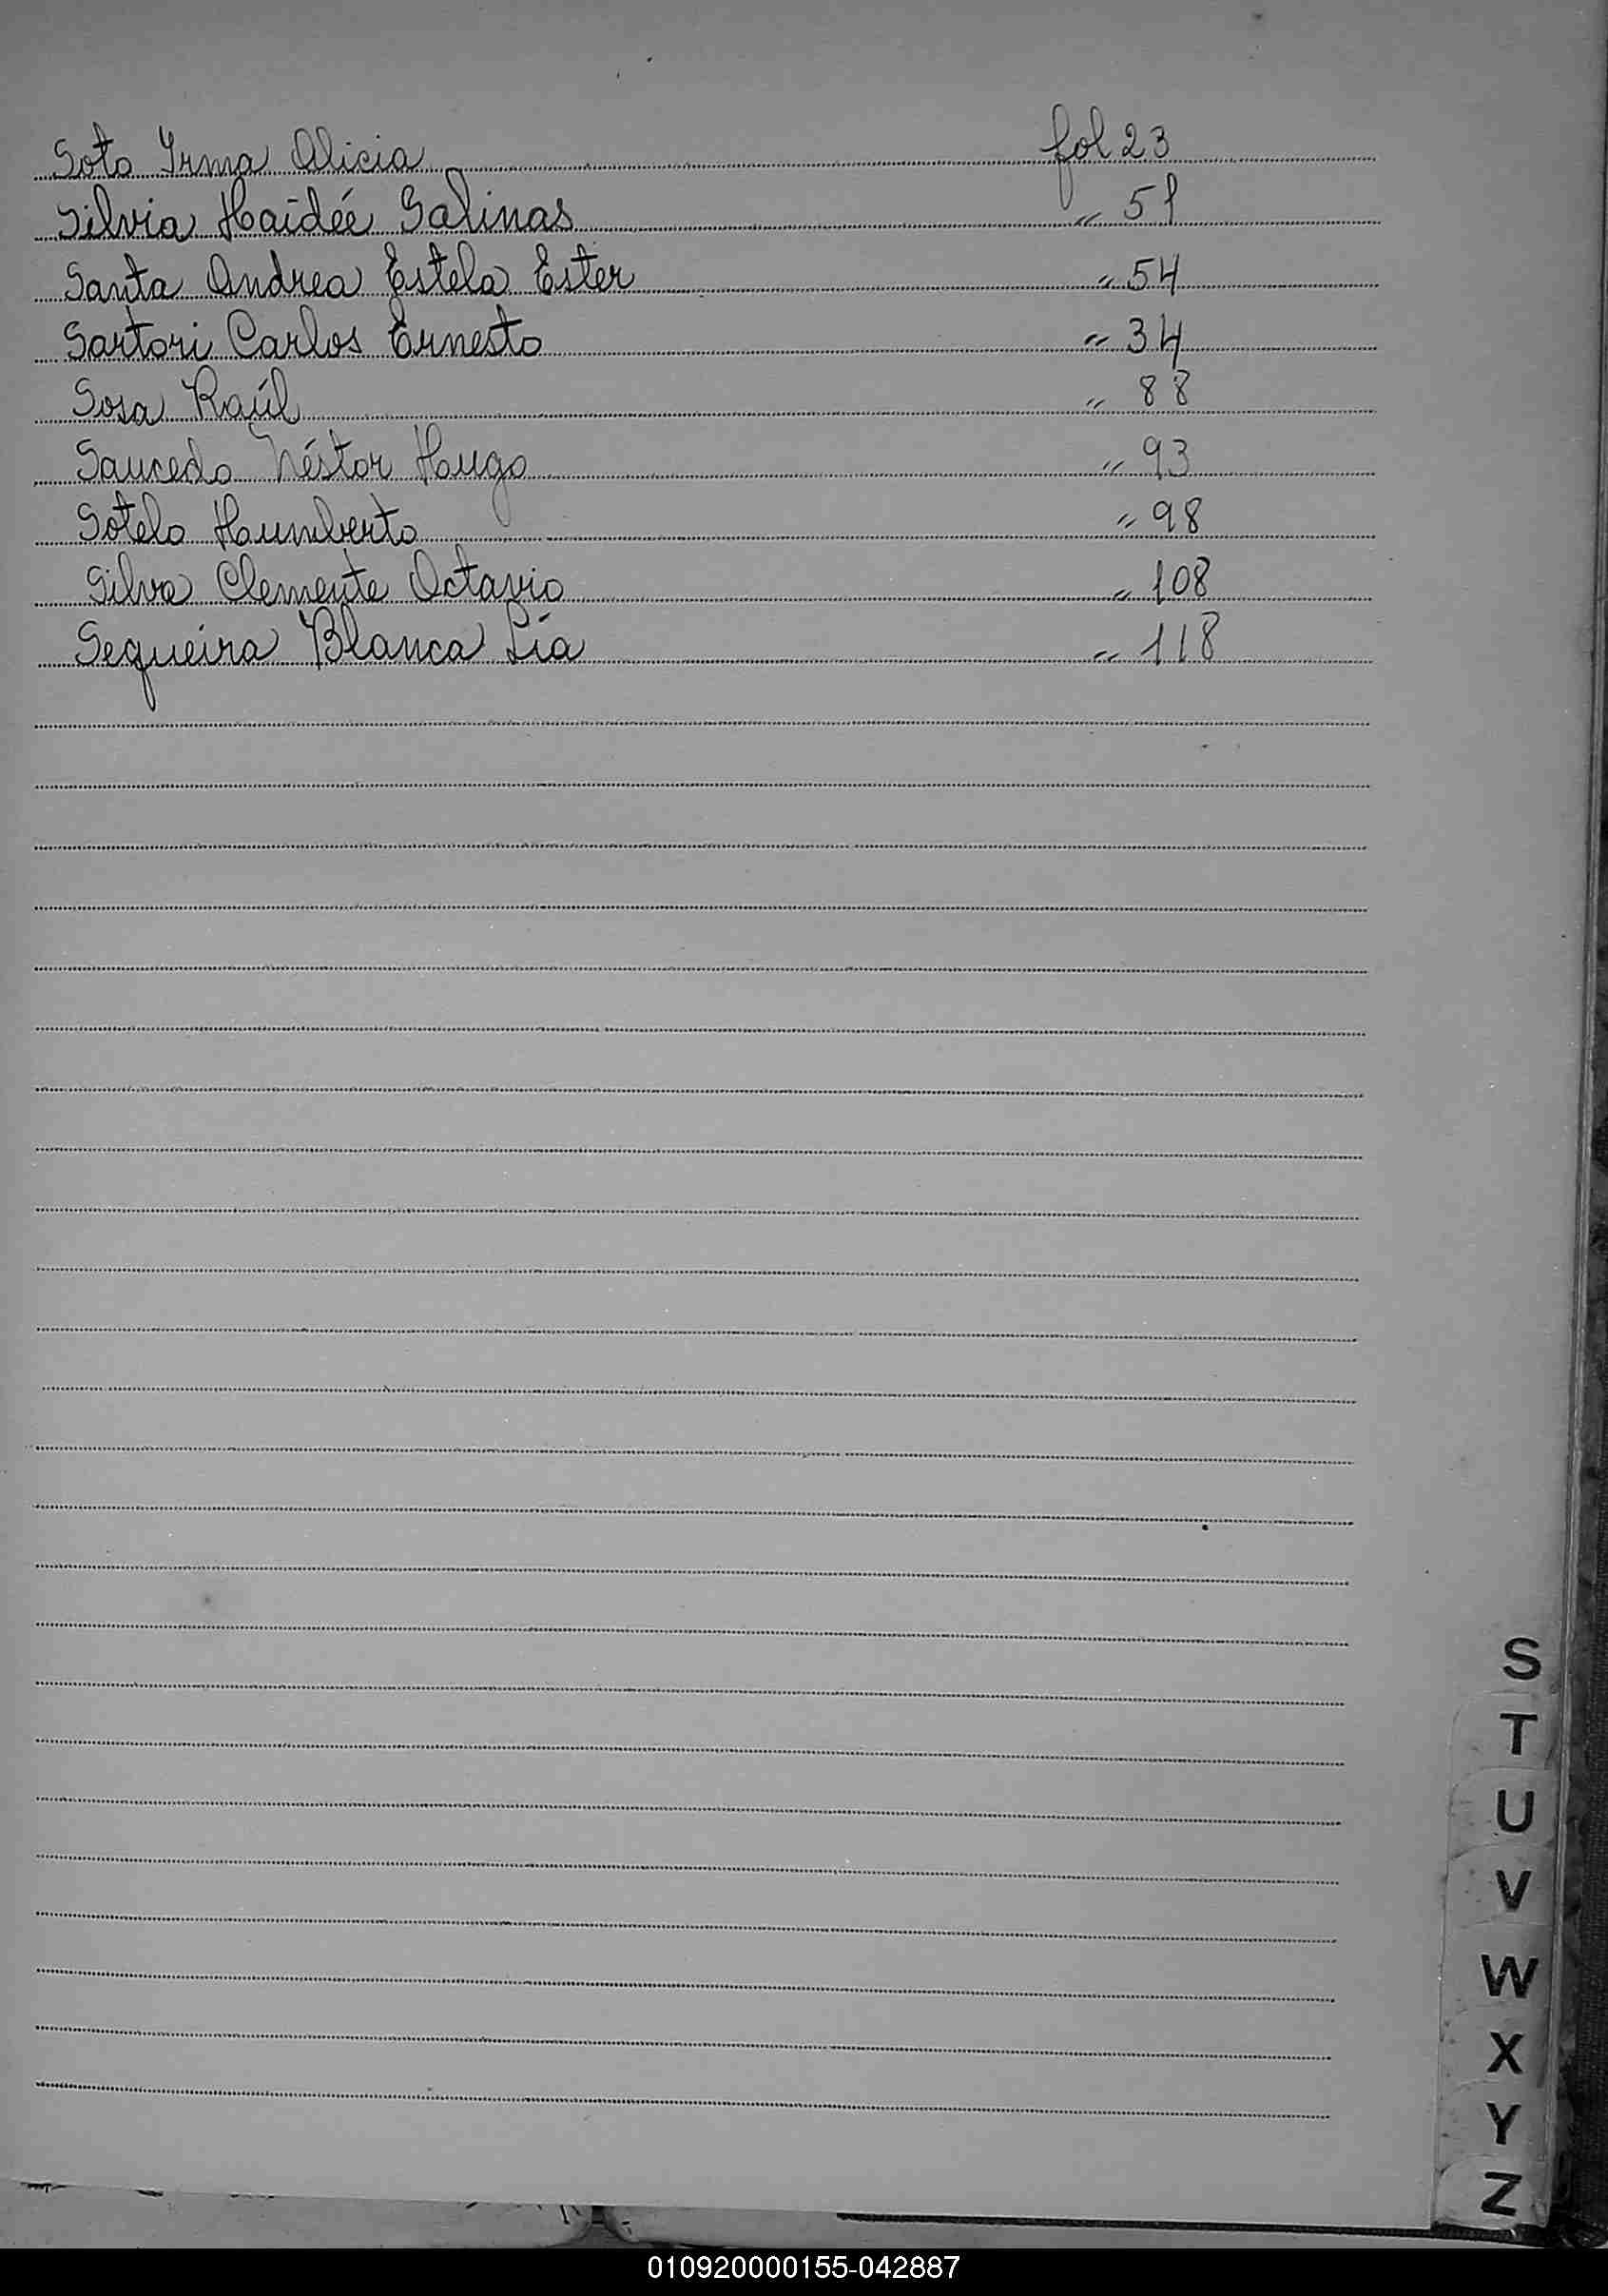 Soto Irma Alicia fol 23
Silvia Haidée Salinas " 51
Santa Andrea Estela Ester " 54
Sartori Carlos Ernesto " 34
Sosa Raúl " 88
Saucedo Néstor Hugo " 93
Sotelo Humberto " 98
Silva Clemente Octavio " 108
Sequeira Blanca Lía " 118
S
T
U
V
W
X
Y
Z
010920000155-042887